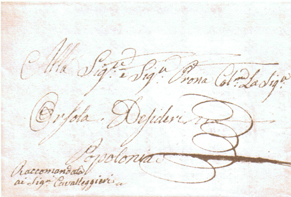 Alla Sig.ra e Sig.a Prona Col.ma La Sig.a
Orsola Desideri
Popolonia
Raccomandata
ai Sig.ri Cavalleggieri